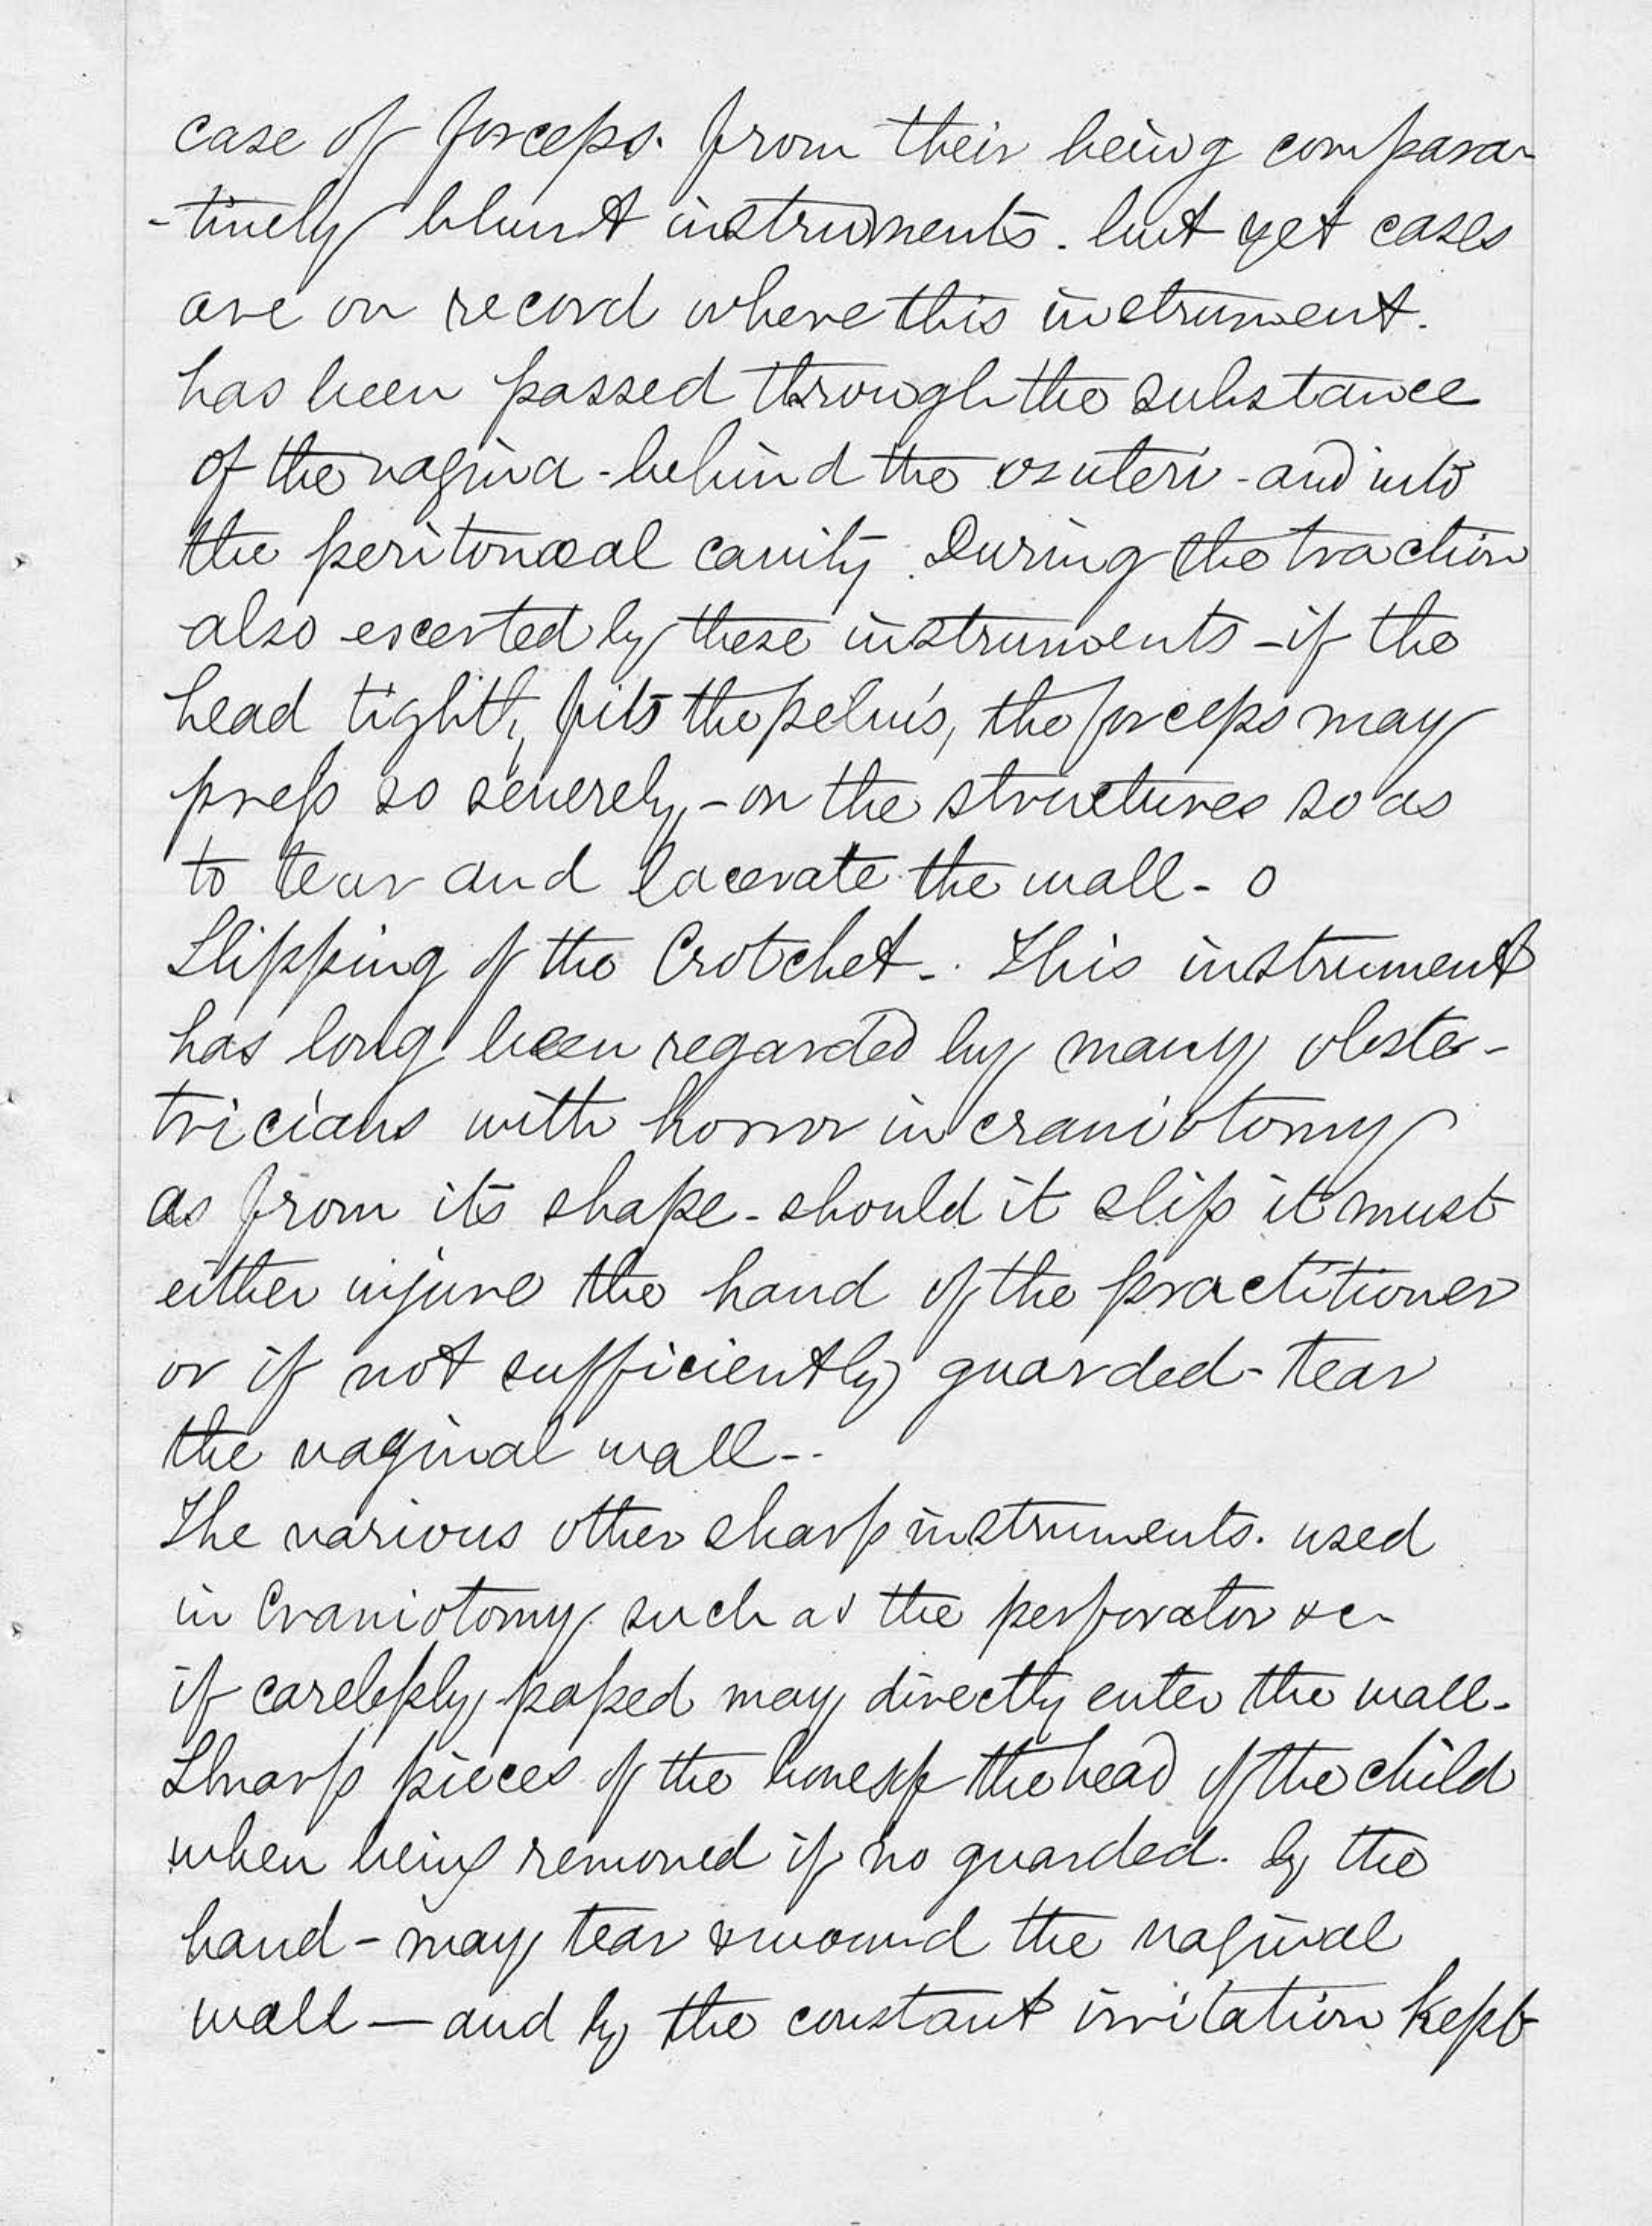 case of forceps. from their being compara-
-tively blunt instruments. but yet cases
are on record where this instrument.
has been passed through the substance
of the vagina - behind the os uteri - and into
the peritonaeal cavity. During the traction
also excerted by these instruments - if the
head tightly fits the pelvis, the forceps may
press so severely, - on the structures so as
to tear and lacerate the wall - o
Slipping of the Crotchet -. This instrument
has long been regarded by many obste-
tricians with horror in craniotomy
as from its shape - should it slip it must
either injure the hand of the practitioner
or if not sufficiently guarded - tear
the vaginal wall - .
The various other sharp instruments. used
in Craniotomy. such as the perforator &c -
if carelessly, passed may directly enter the wall -
Sharp pieces of the bones of the head of the child
when being removed if no guarded. by the
hand - may tear & wound the vaginal
wall — and by the constant irritation kept